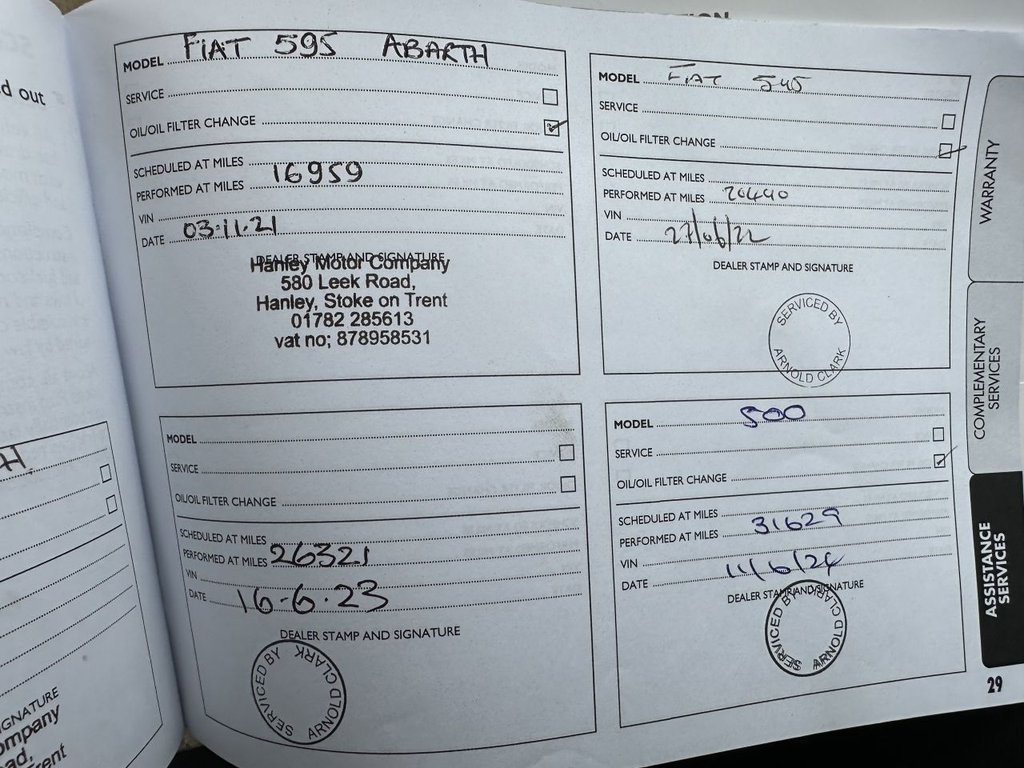 d out
MODEL FIAT 595 ABARTH
SERVICE
OIL/OIL FILTER CHANGE
SCHEDULED AT MILES
PERFORMED AT MILES 16959
VIN
DATE 03.11.21
DEALER STAMP AND SIGNATURE
Hanley Motor Company
580 Leek Road,
Hanley, Stoke on Trent
01782 285613
vat no; 878958531
MODEL FIAT
SERVICE
OIL/OIL FILTER CHANGE
SCHEDULED AT MILES
PERFORMED AT MILES 20440
VIN
DATE 27/06/22
DEALER STAMP AND SIGNATURE
SERVICED BY
ARNOLD CLARK
MODEL
SERVICE
OIL/OIL FILTER CHANGE
SCHEDULED AT MILES
PERFORMED AT MILES 26321
VIN
DATE 16-6-23
DEALER STAMP AND SIGNATURE
SERVICED BY
ARNOLD CLARK
MODEL 500
SERVICE
OIL/OIL FILTER CHANGE
SCHEDULED AT MILES
PERFORMED AT MILES 31629
VIN
DATE 11/6/24
DEALER STAMP AND SIGNATURE
SERVICED BY
ARNOLD CLARK
WARRANTY
COMPLEMENTARY
SERVICES
ASSISTANCE
SERVICES
29
H
IGNATURE
ompany
ad,
rent